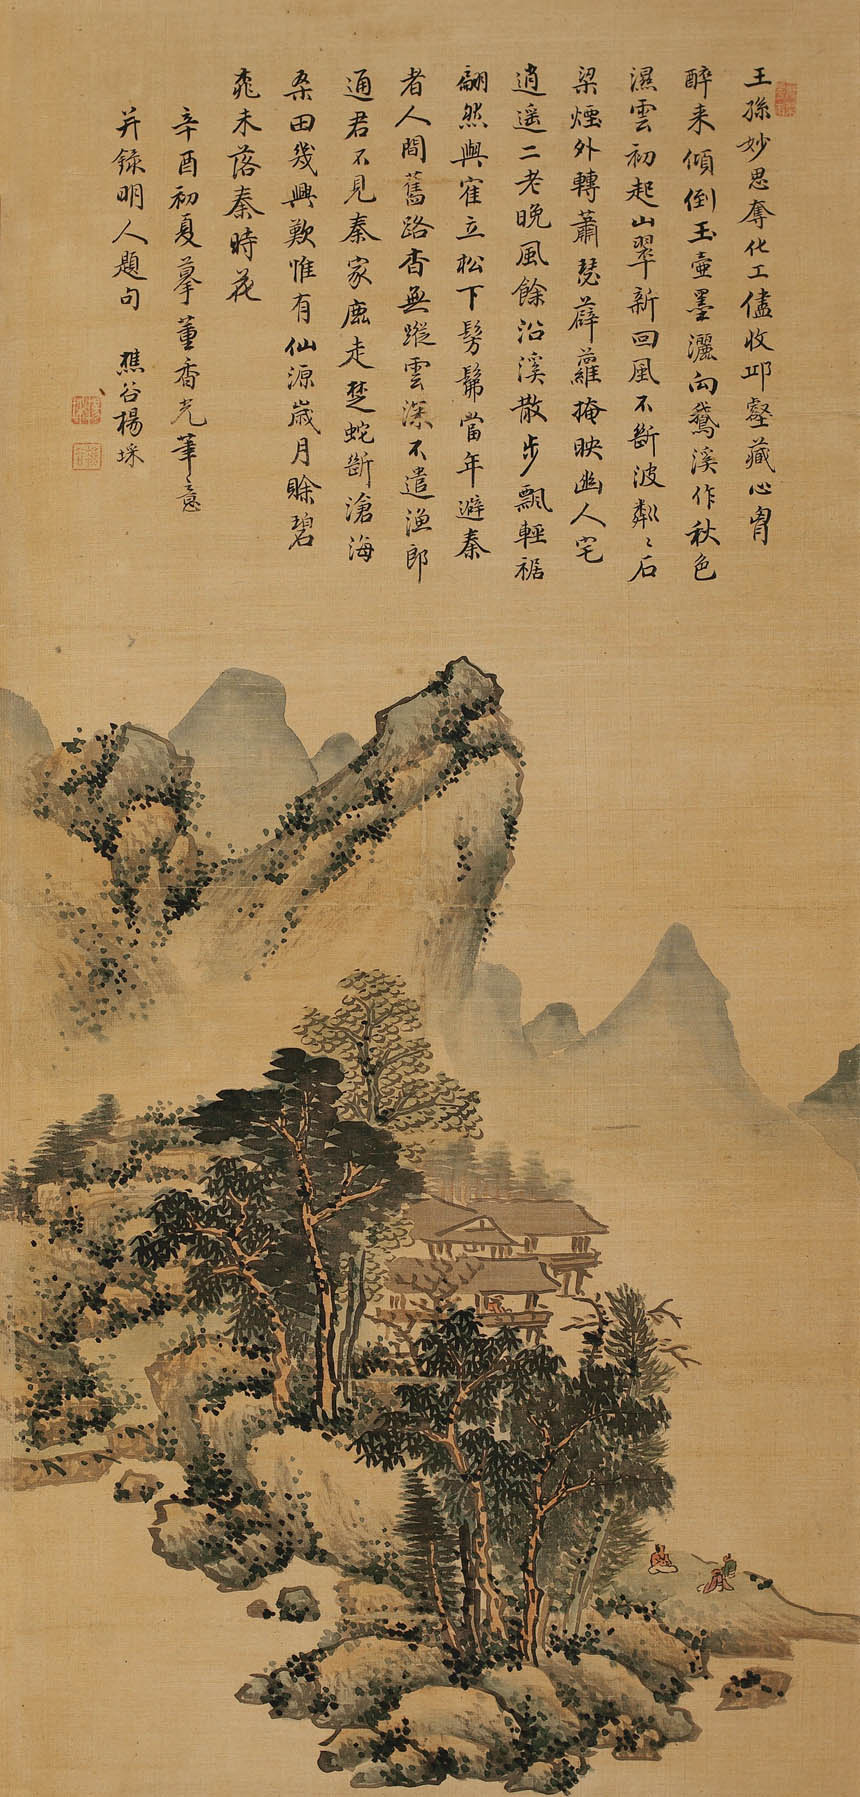 王孫妙思奪化工儘收邱壑藏心胷
醉来傾倒玉壷墨灑向鵞溪作秋色
濕雲初起山翠新回風不斷波粼〻石
梁煙外轉蕭瑟薜蘿掩映幽人宅
逍遥二老晚風餘沿溪散步飄輕裾
翩然與寉立松下髣髴當年避秦
者人間舊路杳無蹤雲深不遣漁郎
通君不見秦家鹿走楚蛇斷滄海
桑田幾興歎惟有仙源歲月賖碧
桃未落秦時花
辛酉初夏摹董香光筆意
并錄明人題句 樵谷楊埰